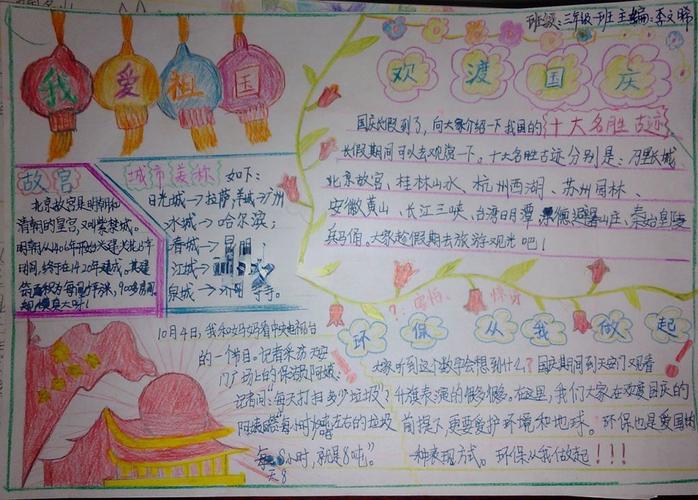 班级:三年级一班 主编:李文晞
我爱祖国
欢渡国庆
国庆长假到了,向大家介绍一下我国的十大名胜古迹
长假期间可以去观演一下。十大名胜古迹分别是:万里长城
北京故宫、桂林山水、杭州西湖、苏州园林、
安徽黄山、长江三峡、台湾日月潭 承德避暑山庄、秦始皇陵
兵马俑。大家趁假期去旅游观光吧!
故宫
北京故宫是明朝和
清朝的皇宫,又叫紫禁城。
明朝从1406年开始
时间,终于在1420年建成。其建
城市美称 如下:
日光城→拉萨,羊城→广州
水城→哈尔滨;
春城→昆明
江城→
泉城→济南 等等。
10月4日,我和妈妈看中央电视台
的一个节目。记者采访天安
门广场上的保洁员阿姨:
记者问:"每天打扫多少垃圾"?
阿姨答:每小时 左右的垃圾
8小时,就是8吨。"
天8
?:害怕、惊讶
环保从我做起
大家听到这个数字会想到什么?国庆期间到天安门观看
升旗表演的很多很多。在这里,我们大家在欢度国庆的
前提下,更要爱护环境和地球。环保也是爱国的
一种表现方式。环保从我做起!!!